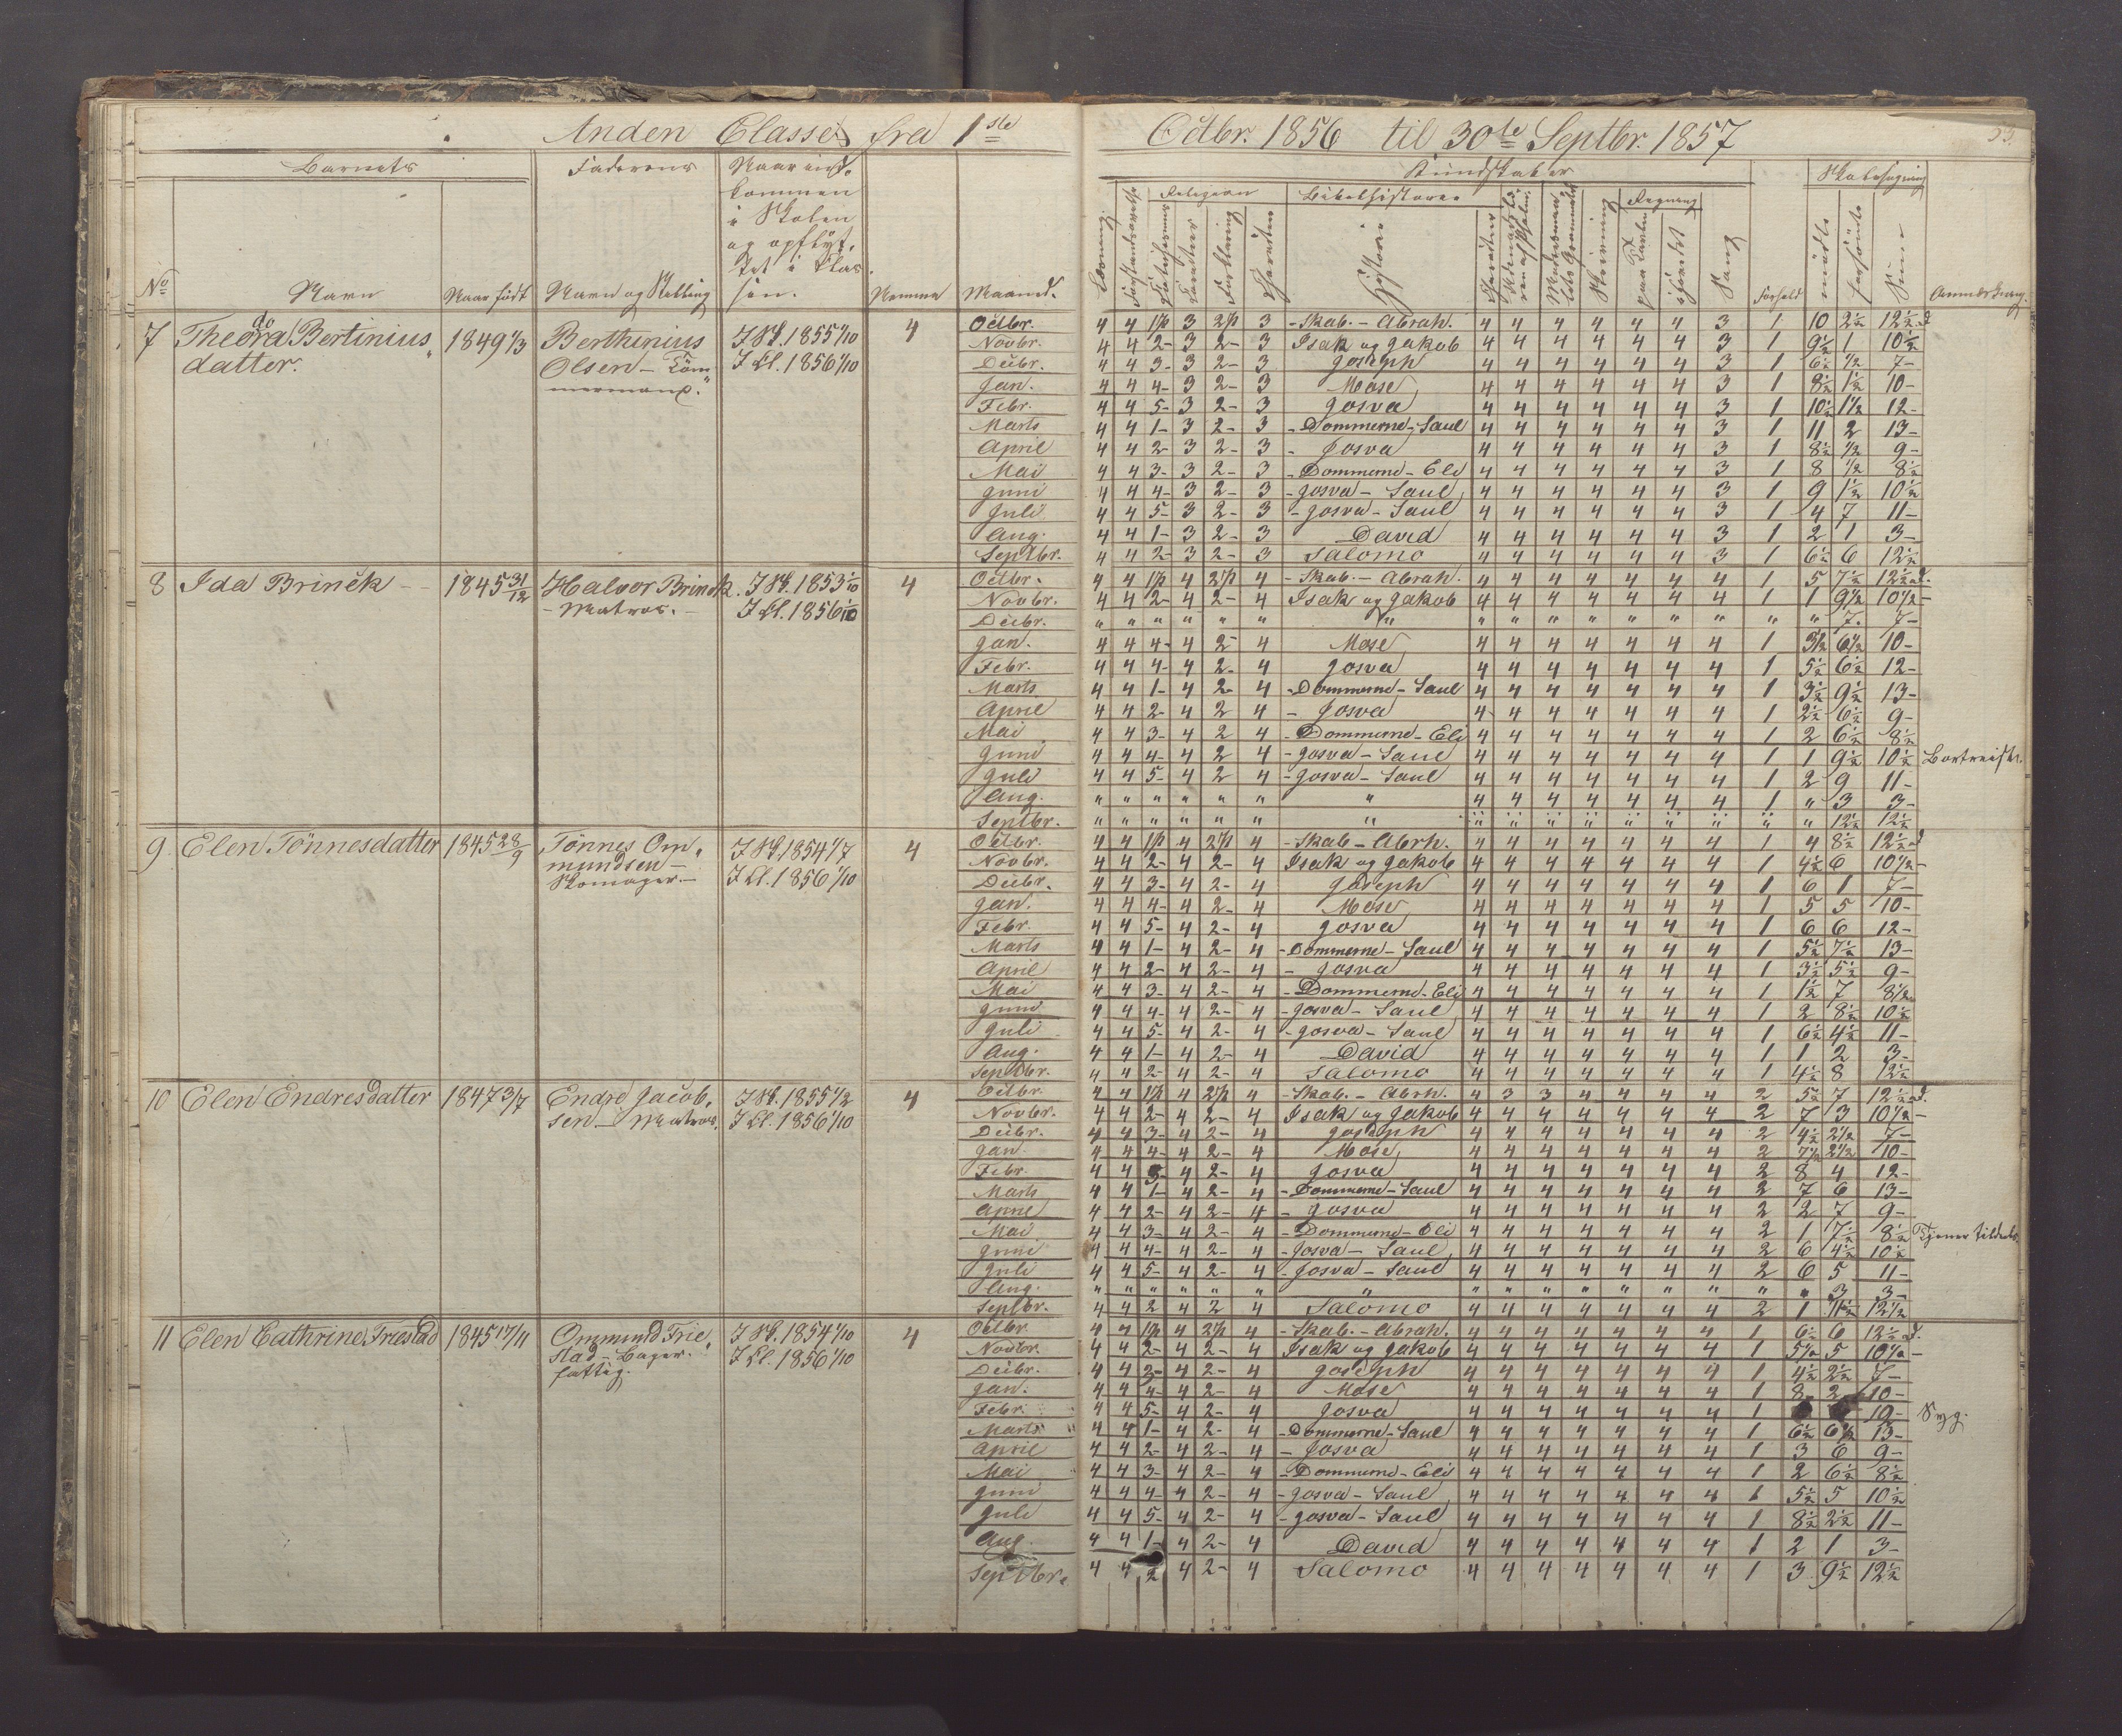 Anden Classe fra 1ste Octbr. 1856 til 30te Septbr. 1857
55
Barnets Faderens Naar ind-
kommen
i Skolen
og opflyt-
tet i Klas-
sen.
No Navn Naar født Navn og Stilling Nemme Maaned.
Kundskaber Skolesøgning
Religion Bibelhistorie Regning
Læsning Historie Skrivning paa Tavlen i Hovedet Sang Forhold mødte forsømte Anmærkning.
7 Theodora Bertinius- 1849 1/3 Berthinius I Sk. 1855 1/10 4
datter. Olsen - Töm- I Kl. 1856 1/10
mermand.
Octbr. 4 4 1 3 2 3 - Skab. - Abrah. 4 4 4 4 4 4 3 1 10 2½ 12½ d
Novbr. 4 4 2- 3 2- 3 Isak og Jakob 4 4 4 4 4 4 3 1 9½ 1 10½
Decbr. 4 4 3- 3 2- 3 Joseph 4 4 4 4 4 4 3 1 6½ ½ 7-
Jan. 4 4 4- 3 2- 3 Mose 4 4 4 4 4 4 3 1 8½ 1½ 10-
Febr. 4 4 5- 3 2- 3 Josva 4 4 4 4 4 4 3 1 10½ 1½ 12-
Marts 4 4 1- 3 2- 3 - Dommerne - Saul 4 4 4 4 4 4 3 1 11 2 13-
April 4 4 2 3 2- 3 - Josva 4 4 4 4 4 4 3 1 8½ ½ 9-
Mai 4 4 3- 3 2- 3 - Dommerne - Eli 4 4 4 4 4 4 3 1 8 ½ 8½
Juni 4 4 4- 3 2- 3 - Josva - Saul 4 4 4 4 4 4 3 1 9 1½ 10½
Juli 4 4 5- 3 2- 3 - Josva - Saul 4 4 4 4 4 4 3 1 4 7 11-
Aug. 4 4 1- 3 2- 3 David 4 4 4 4 4 4 3 1 2 1 3-
Septbr. 4 4 2- 3 2- 3 Salomo 4 4 4 4 4 4 3 1 6½ 6 12½
8 Ida Brinck - 1845 31/12 Halvor Brinck. I Sk. 1853 1/10 4
- Matros. - I Kl. 1856 1/10
Octbr. 4 4 1 4 2 4 - Skab. - Abrah. 4 4 4 4 4 4 4 1 5 7½ 12½ d.
Novbr. 4 4 2- 4 2- 4 Isak og Jakob 4 4 4 4 4 4 4 1 1 9½ 10½-
Decbr. " " " " " " " " " " " " " " " " 7. 7-
Jan. 4 4 4- 4 2- 4 Mose 4 4 4 4 4 4 4 1 3½ 6½ 10-
Febr. 4 4 4- 4 2- 4 Josva 4 4 4 4 4 4 4 1 5½ 6½ 12-
Marts 4 4 1- 4 2- 4 - Dommerne - Saul 4 4 4 4 4 4 4 1 3½ 9½ 13-
April 4 4 2- 4 2 4 - Josva 4 4 4 4 4 4 4 1 2½ 6½ 9-
Mai 4 4 3- 4 2 4 - Dommerne - Eli 4 4 4 4 4 4 4 1 2 6½ 8½
Juni 4 4 4- 4 2 4 - Josva - Saul 4 4 4 4 4 4 4 1 1 9½ 10½ Bortreist.
Juli 4 4 5- 4 2 4 - Josva - Saul 4 4 4 4 4 4 4 1 2 9 11-
Aug. " " " " " " " 4 4 4 4 4 4 4 1 " 3 3-
Septbr. " " " " " " " " " " " " " " " " 12½ 12½
9 Elen Tönnesdatter 1845 28/9 Tönnes Om- I Sk. 1854 1/7 4
mundsen - I Kl. 1856 1/10
Skomager. -
Octbr. 4 4 1 4 2 4 - Skab - Abrh. 4 4 4 4 4 4 4 1 4 8½ 12½ d
Novbr. 4 4 2- 4 2- 4 Isak og Jakob 4 4 4 4 4 4 4 1 4½ 6 10½-
Decbr. 4 4 3- 4 2- 4 Joseph 4 4 4 4 4 4 4 1 6 1 7-
Jan. 4 4 4- 4 2- 4 Mose 4 4 4 4 4 4 4 1 5 5 10-
Febr. 4 4 5- 4 2- 4 Josva 4 4 4 4 4 4 4 1 6 6 12-
Marts 4 4 1- 4 2- 4 - Dommerne - Saul 4 4 4 4 4 4 4 1 5½ 7½ 13-
April 4 4 2- 4 2- 4 - Josva 4 4 4 4 4 4 4 1 3½ 5½ 9-
Mai 4 4 3- 4 2- 4 - Dommerne - Eli 4 4 4 4 4 4 4 1 1½ 7 8½
Juni 4 4 4- 4 2- 4 - Josva - Saul 4 4 4 4 4 4 4 1 2 8½ 10½
Juli 4 4 5- 4 2- 4 - Josva - Saul 4 4 4 4 4 4 4 1 6½ 4½ 11-
Aug. 4 4 1- 4 2- 4 David 4 4 4 4 4 4 4 1 1 2 3-
Septbr. 4 4 2- 4 2- 4 Salomo 4 4 4 4 4 4 4 1 4½ 8 12½
10 Elen Endresdatter 1847 3/7 Endre Jacob- I Sk. 1855 1/2 4
sen - Matros. I Kl. 1856 1/10
Octbr. 4 4 1 4 2 4 - Skab. - Abrh. 4 3 3 4 4 4 4 2 5½ 7 12½ d.
Novbr. 4 4 2- 4 2- 4 Isak og Jakob 4 4 4 4 4 4 4 2 7 3 10½-
Decbr. 4 4 3- 4 2- 4 Joseph 4 4 4 4 4 4 4 2 4½ 2½ 7-
Jan. 4 4 4- 4 2- 4 Mose 4 4 4 4 4 4 4 2 7½ 2½ 10-
Febr. 4 4 5- 4 2- 4 Josva 4 4 4 4 4 4 4 2 8 4 12-
Marts 4 4 1- 4 2- 4 - Dommerne - Saul 4 4 4 4 4 4 4 2 7 6 13-
April 4 4 2- 4 2- 4 - Josva 4 4 4 4 4 4 4 2 2 7 9-
Mai 4 4 3- 4 2- 4 - Dommerne - Eli 4 4 4 4 4 4 4 2 1 7½ 8½ Tjener
Juni 4 4 4- 4 2- 4 - Josva - Saul 4 4 4 4 4 4 4 2 6 4½ 10½
Juli 4 4 5- 4 2- 4 - Josva - Saul 4 4 4 4 4 4 4 2 6 5 11-
Aug. " " " " " " " " " " " " " " " " 3 3-
Septbr. 4 4 2 4 2 4 Salomo 4 4 4 4 4 4 4 2 1 11½ 12½
11 Elen Cathrine Friestad 1845 17/11 Ommund Frie- I Sk. 1854 1/10 4
stad - Bager. I Kl. 1856 1/10
fattig.
Octbr. 4 4 1 4 2 4 - Skab. - Abrah. 4 4 4 4 4 4 4 1 6½ 6 12½ d.
Novbr. 4 4 2- 4 2- 4 Isak og Jakob 4 4 4 4 4 4 4 1 5½ 5 10½-
Decbr. 4 4 3- 4 2- 4 Joseph 4 4 4 4 4 4 4 1 4½ 2½ 7-
Jan. 4 4 4- 4 2- 4 Mose 4 4 4 4 4 4 4 1 8 2 10-
Febr. 4 4 5- 4 2- 4 Josva 4 4 4 4 4 4 4 1 Syg.
Marts 4 4 1- 4 2- 4 - Dommerne - Saul 4 4 4 4 4 4 4 1 6½ 6½ 13-
April 4 4 2- 4 2- 4 - Josva 4 4 4 4 4 4 4 1 3 6 9-
Mai 4 4 3- 4 2- 4 - Dommerne - Eli 4 4 4 4 4 4 4 1 2 6½ 8½
Juni 4 4 4- 4 2- 4 - Josva - Saul 4 4 4 4 4 4 4 1 5½ 5 10½
Juli 4 4 5- 4 2- 4 - Josva - Saul 4 4 4 4 4 4 4 1 8½ 2½ 11-
Aug. 4 4 1- 4 2- 4 David 4 4 4 4 4 4 4 1 2 1 3-
Septbr. 4 4 2 4 2- 4 Salomo 4 4 4 4 4 4 4 1 3 9½ 12½